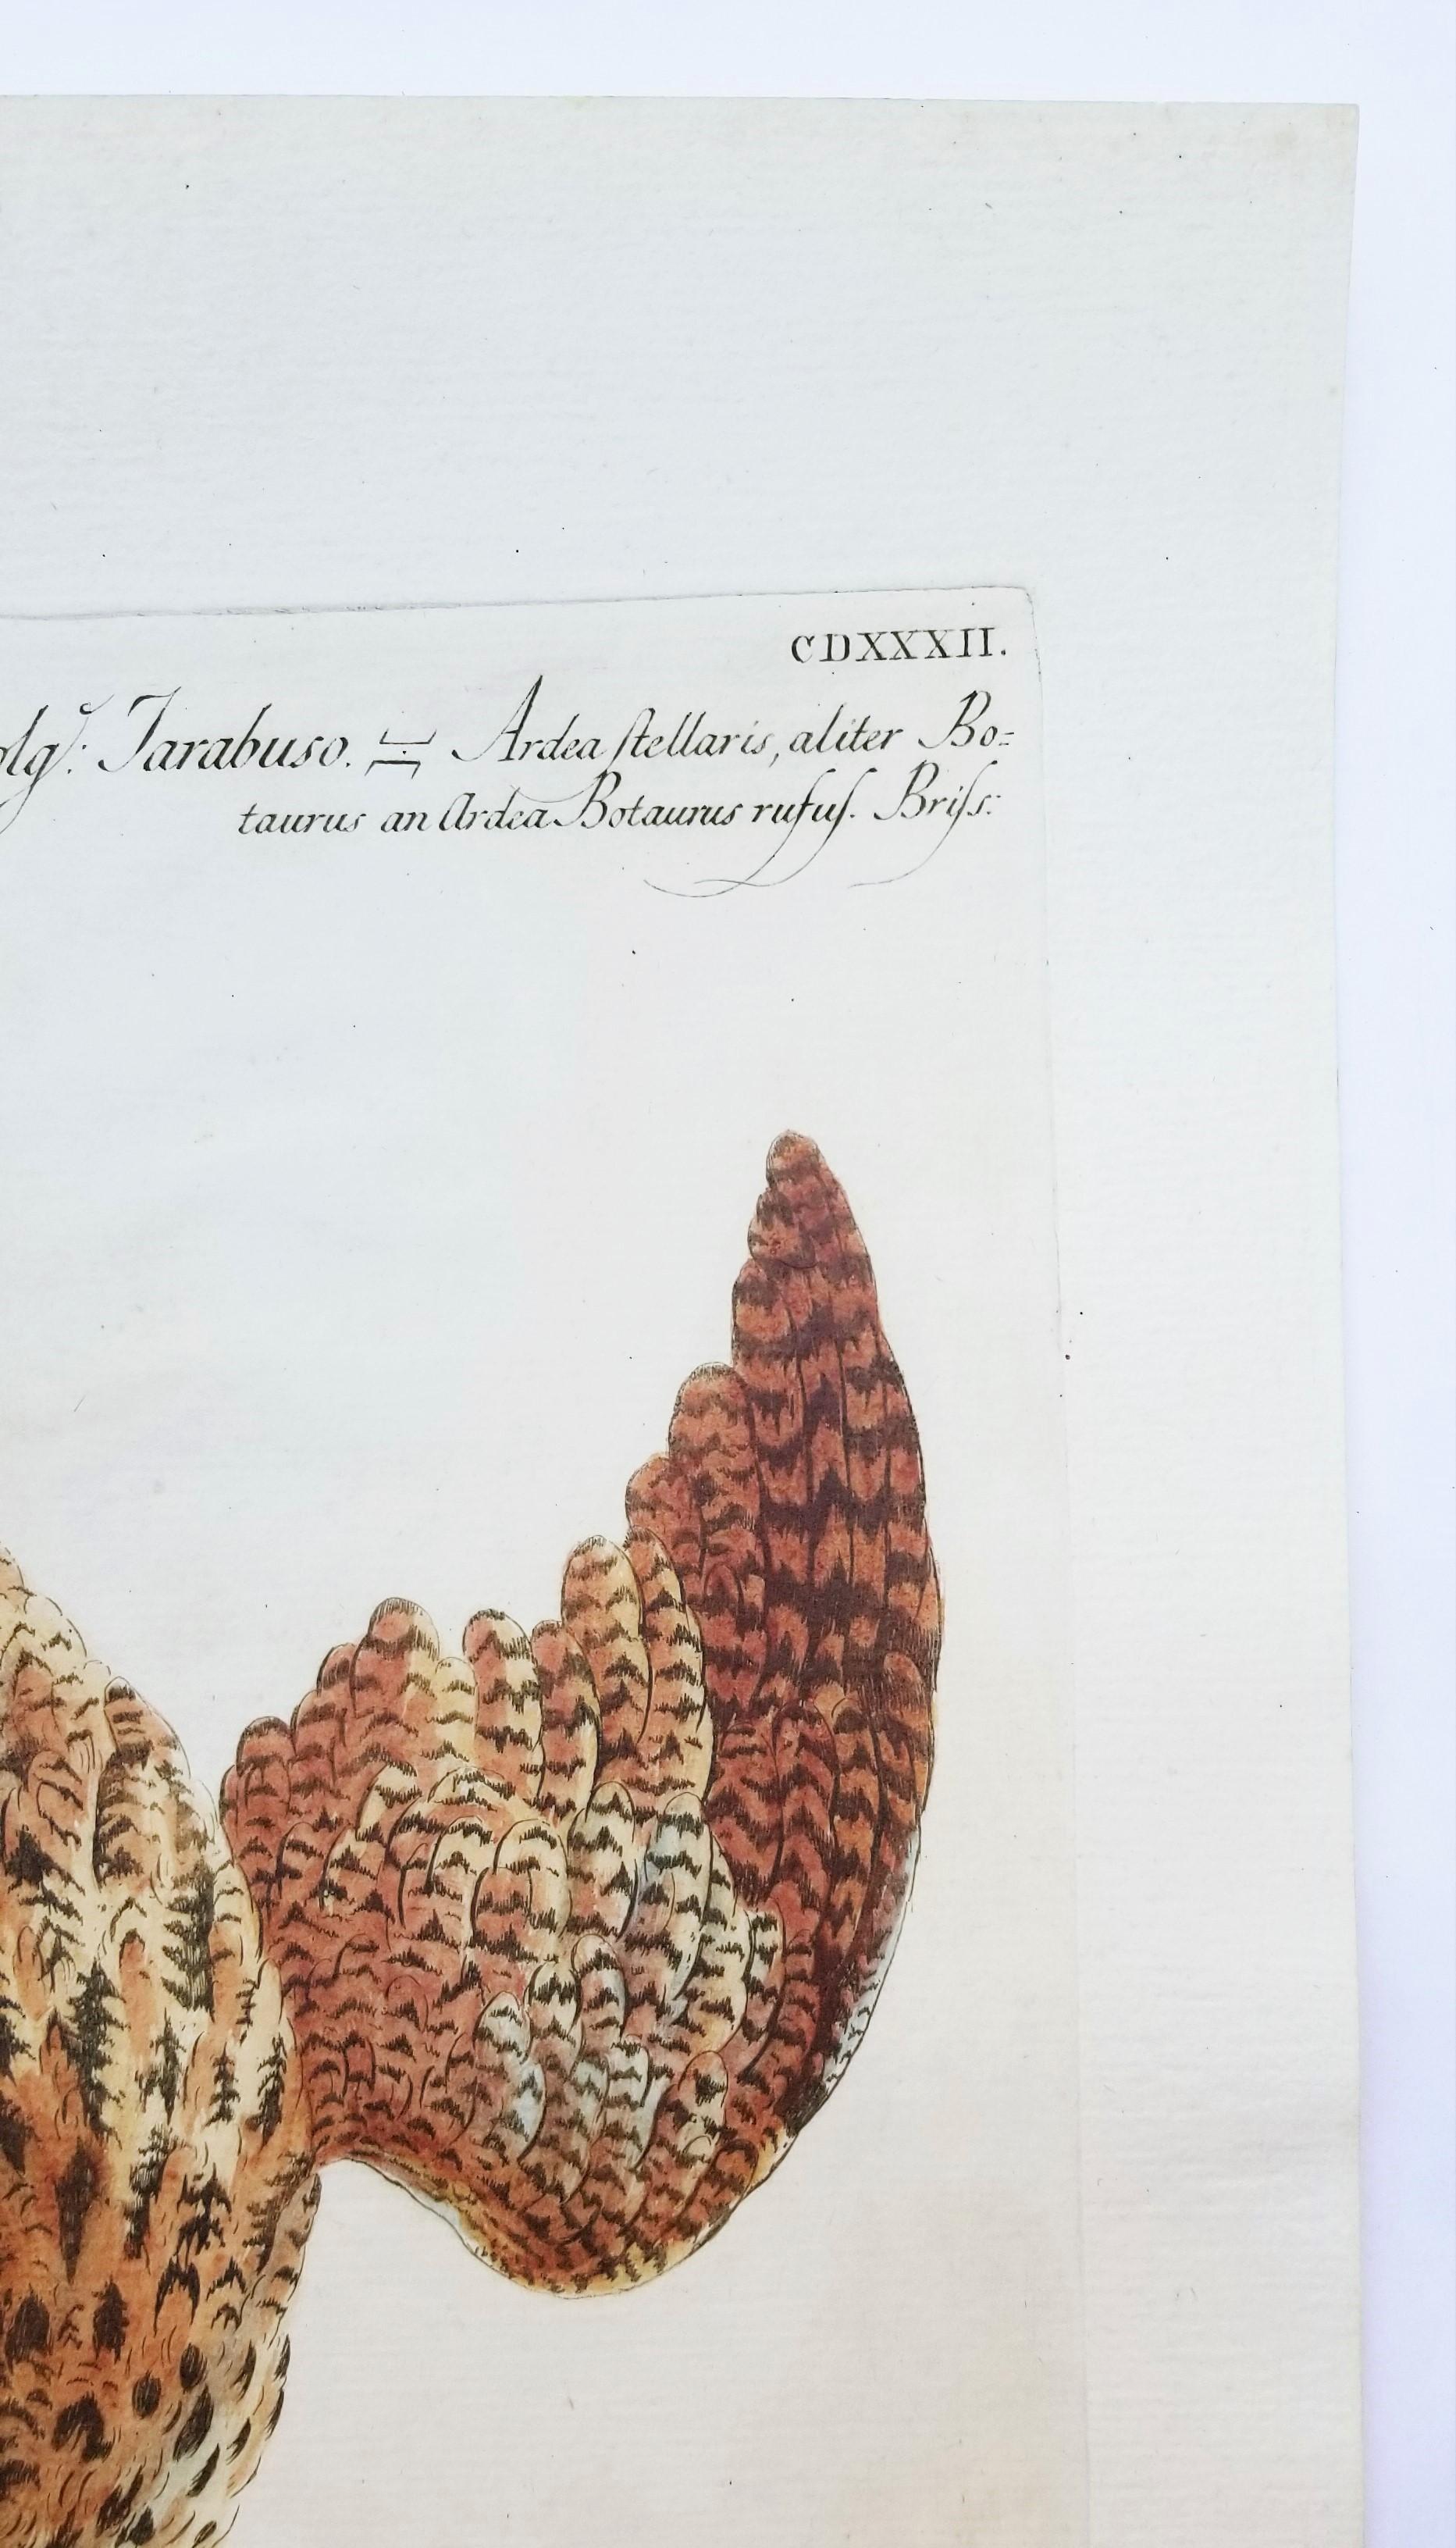 CDXXXII.
olg: Tarabuso. Ardea ſtellaris, aliter Bo=
taurus an Ardea Botaurus rufuſ. Briſs: